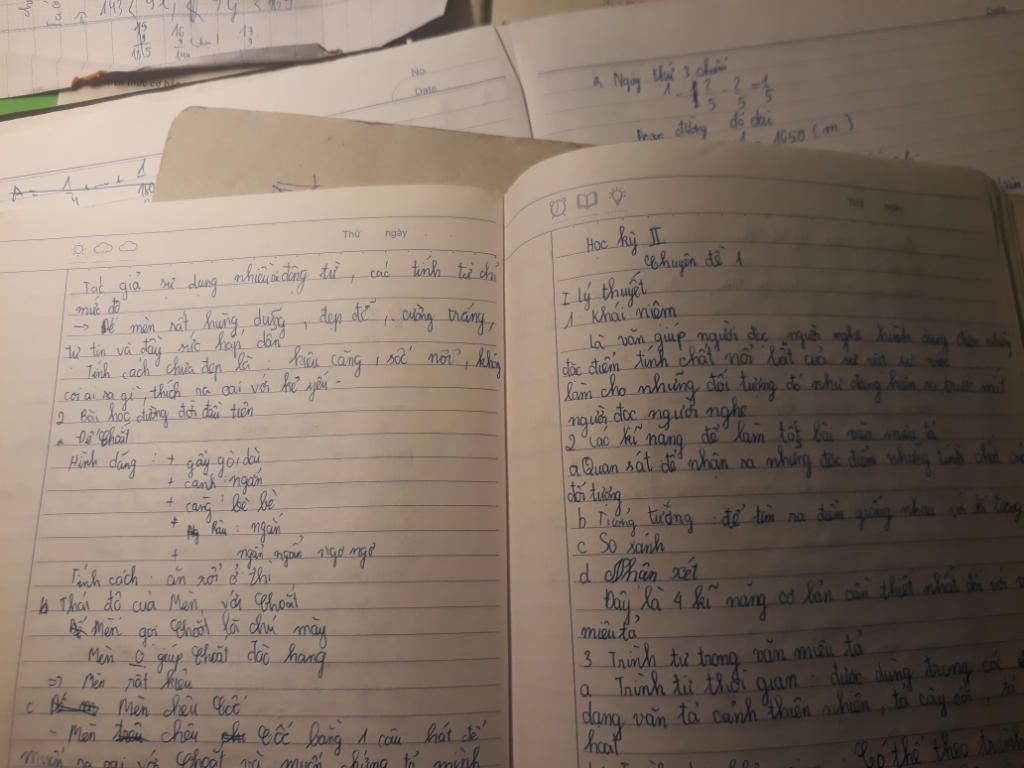 143
15
9
135
16
9
144
17
9
No.
Date
Date
A Ngày thứ 3 chiếm
1 - 2/5 - 2/5 = 1/5
Đoạn đường đó dài
1650 (m)
A = 1/4 + ... + 1/
Thứ ngày
Tác giả sử dụng nhiều động từ, các tính từ chỉ
mức độ
→ Dế mèn rất hùng dũng, đẹp đẽ, cường tráng,
tự tin và đầy sức hấp dẫn
Tính cách chưa đẹp là : kiêu căng, sốc nổi, không
coi ai ra gì, thích ra oai với kẻ yếu.
2 Bài học đường đời đầu tiên
a Dế Choắt
Hình dáng : + gầy gò, dài
+ cánh : ngắn
+ càng : bè bè
+ Râu : ngắn
+ ngẩn ngẩn ngơ ngơ
Tính cách : ăn xổi ở thì
b Thái độ của Mèn, với Choắt
Mèn gọi Choắt là chú mày
Mèn 0 giúp Choắt đào hang
=> Mèn rất kiêu
c Mèn chêu Cốc
- Mèn chêu Cốc bằng 1 câu hát để
muốn ra oai với Choắt và muốn chứng tỏ mình
Thứ ngày
Học kỳ II
Chuyên đề 1
I Lý thuyết
1 Khái niệm
Là văn giúp người đọc, người nghe hình dung được những
đặc điểm tính chất nổi bật của sự vật sự việc
làm cho những đối tượng đó như đang hiện ra trước mắt
người đọc người nghe
2 Các kĩ năng để làm tốt bài văn miêu tả
a Quan sát để nhận ra những đặc điểm những tính chất của
đối tượng
b Tưởng tượng : để tìm ra điểm giống nhau và
c So sánh
d Nhận xét
Đây là 4 kĩ năng cơ bản cần thiết nhất đối với
miêu tả
3 Trình tự trong văn miêu tả
a Trình tự thời gian : được dùng trong các
dạng văn tả cảnh thiên nhiên, tả cây cối, tả
hoạt
Có thể theo trình